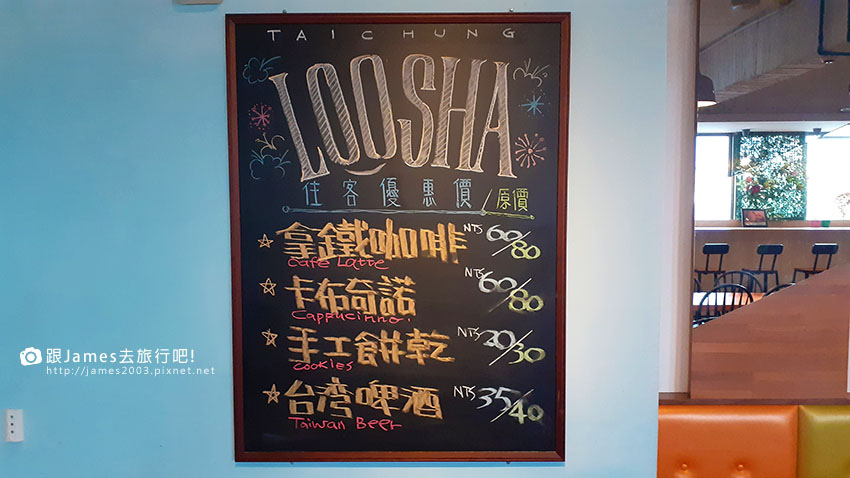 TAICHUNG
LOOSHA
住客優惠價/原價
拿鐵咖啡 NT$ 60/80
Cafe Latte
卡布奇諾 NT$ 60/80
Cappuccino.
手工餅乾 NT$ 20/30
COOKIES
台湾啤酒 NT$ 35/40
Taiwan Beer
跟James去旅行吧!
http://james2003.pixnet.net